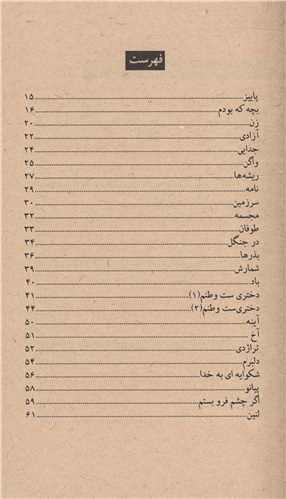 فهرست
پاییز ۱۵
بچه که بودم ۱۶
زن ۲۰
آزادی ۲۲
جدایی ۲۴
واگن ۲۵
ریشه‌ها ۲۷
نامه ۲۹
سرزمین ۳۰
مجسمه ۳۲
طوفان ۳۳
در جنگل ۳۴
بذرها ۳۶
شمارش ۳۹
باد ۴۰
دختری ست وطنم(۱) ۴۱
دختری‌ست وطنم(۲) ۴۴
آینه ۵۰
آخ ۵۱
تراژدی ۵۲
دلبرم ۵۴
شکوایه ای به خدا ۵۶
پیانو ۵۸
اگر چشم فرو بستم ۵۹
لنین ۶۱